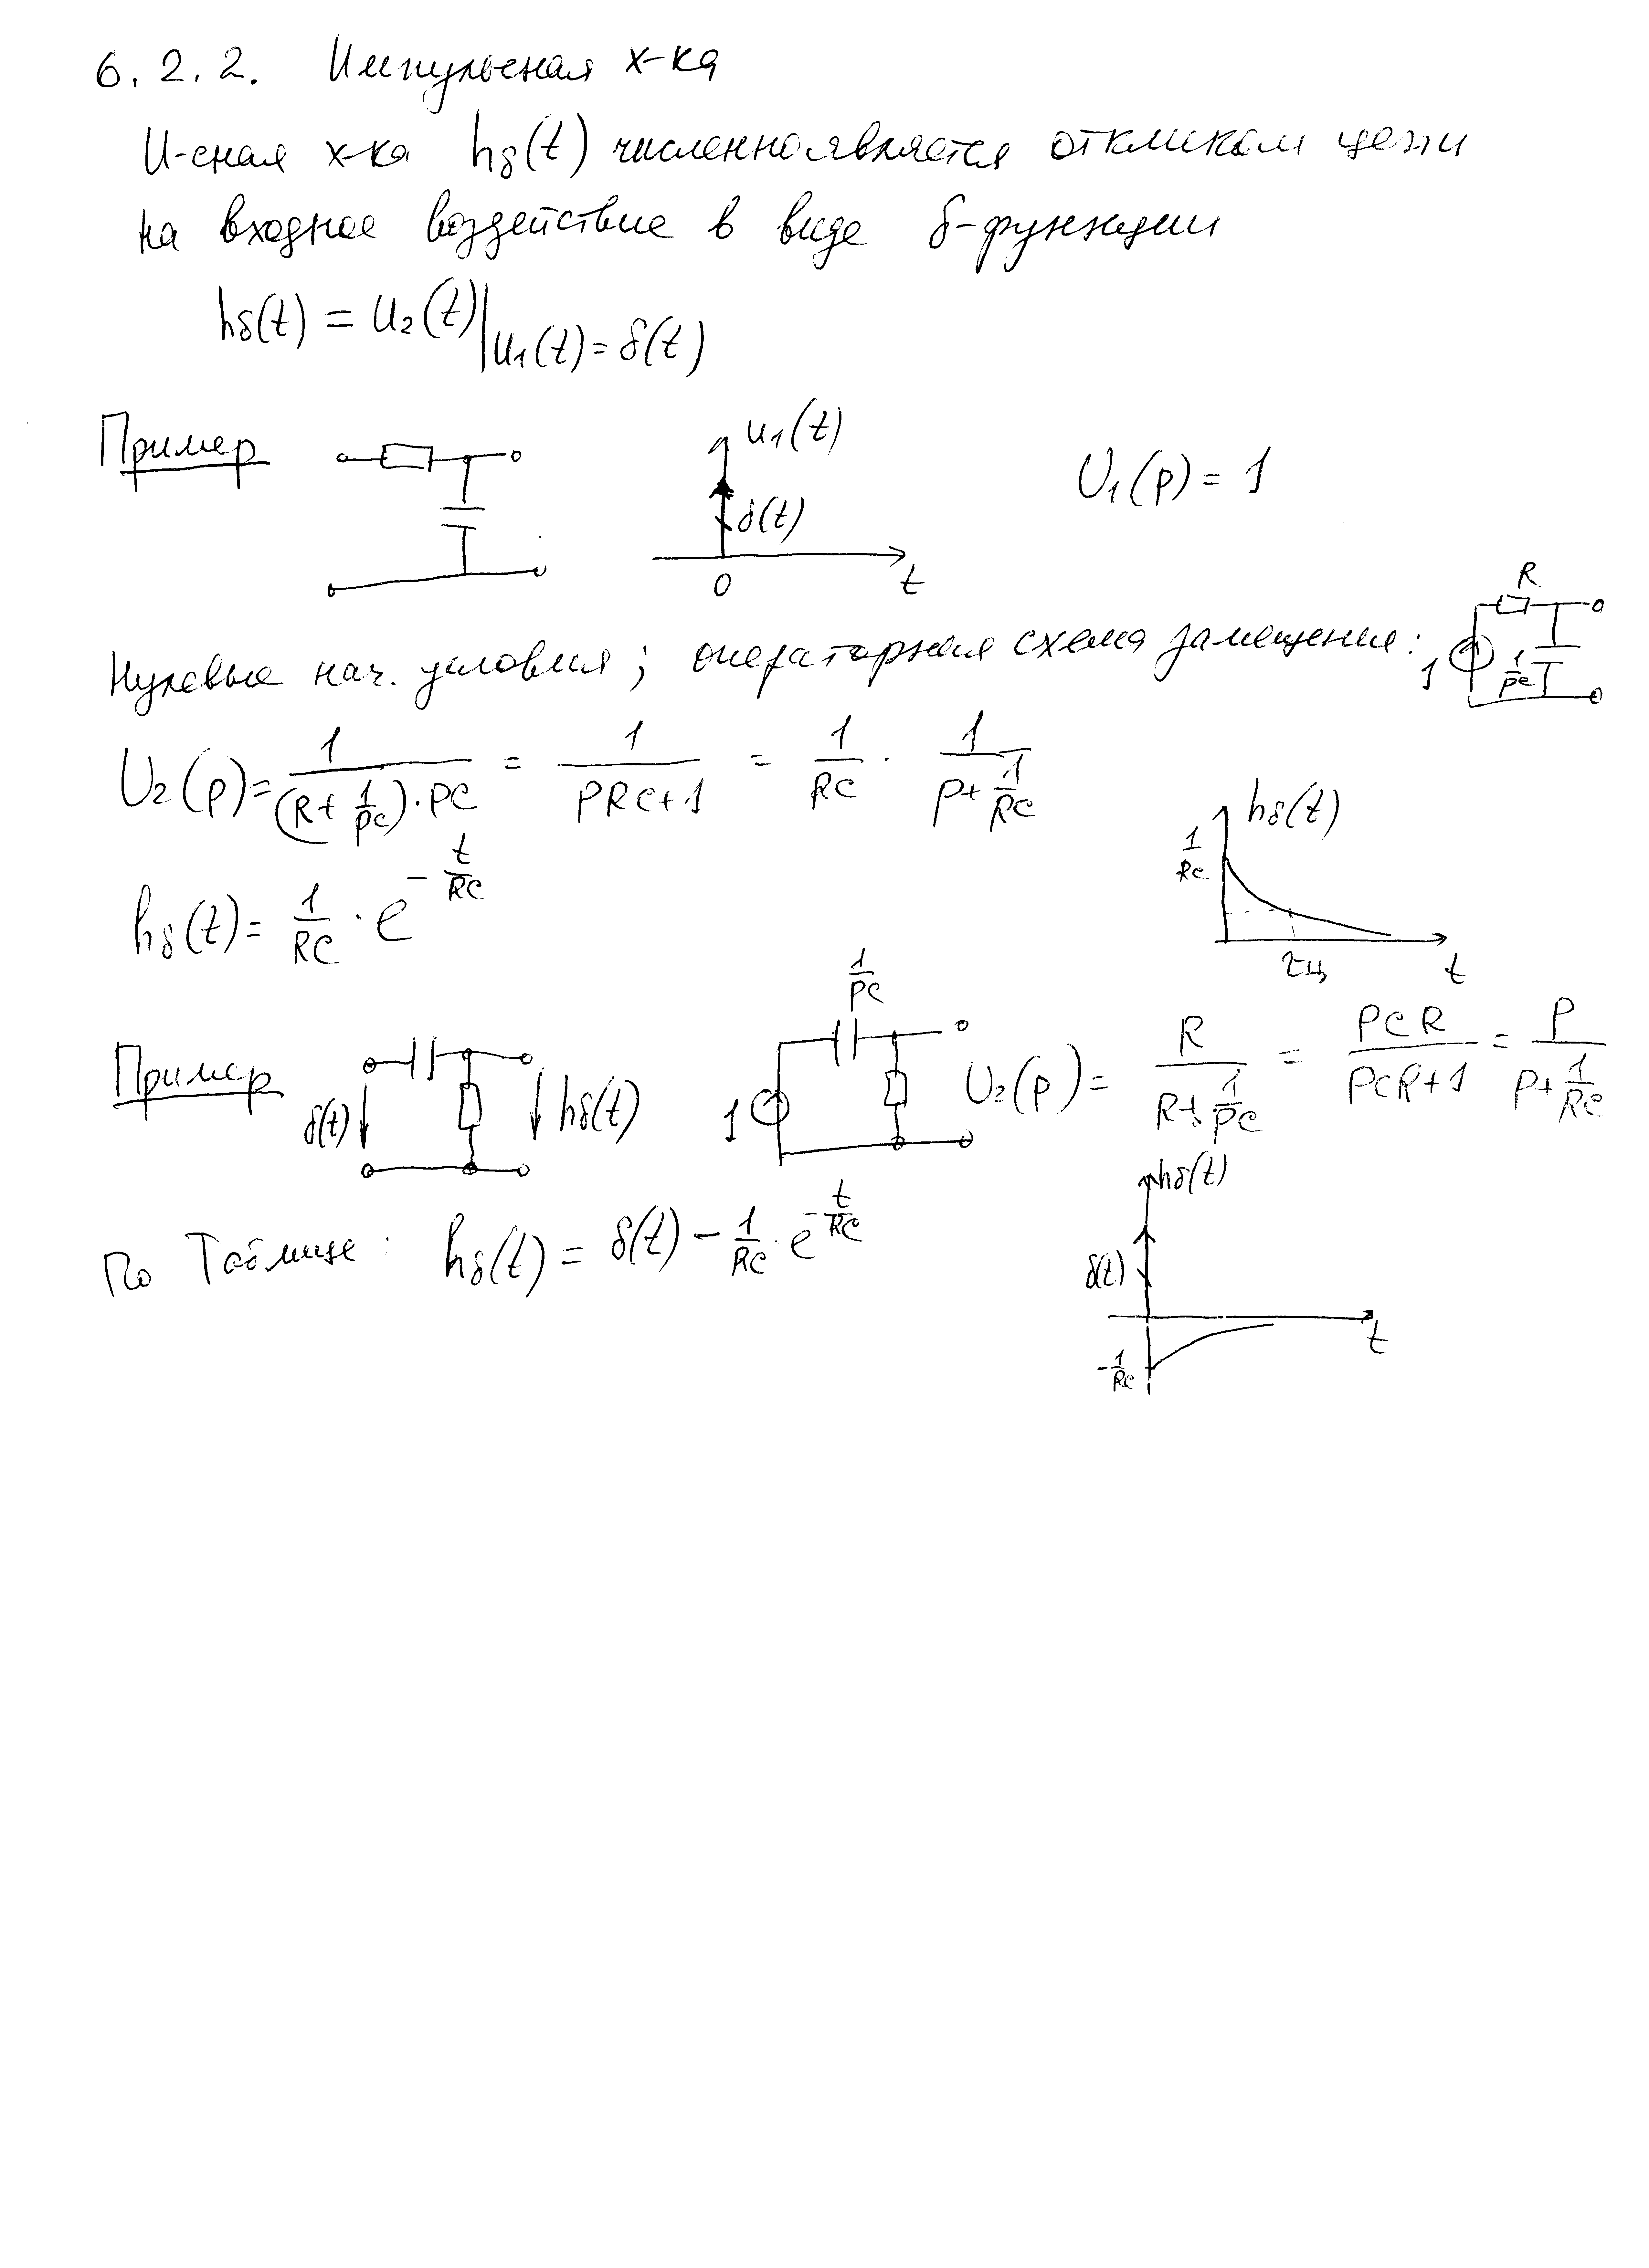 6.2.2. Импульсная х-ка
И-сная х-ка hδ(t) численно является откликом цепи
на входное воздействие в виде δ-функции
hδ(t) = u₂(t)|u₁(t)=δ(t)
Пример
u₁(t)
δ(t)
0
t
U₁(p) = 1
Нулевые нач. условия; операторная схема замещения:
R
1
1/pC
U₂(p) = 1/((R + 1/pC)·pC) = 1/(pRC+1) = 1/RC · 1/(p + 1/RC)
hδ(t) = 1/RC · e^(-t/RC)
hδ(t)
1/RC
τц
t
Пример
δ(t)
hδ(t)
1/pC
1
U₂(p) = R/(R + 1/pC) = pCR/(pCR+1) = p/(p + 1/RC)
По таблице: hδ(t) = δ(t) - 1/RC · e^(-t/RC)
hδ(t)
δ(t)
t
-1/RC